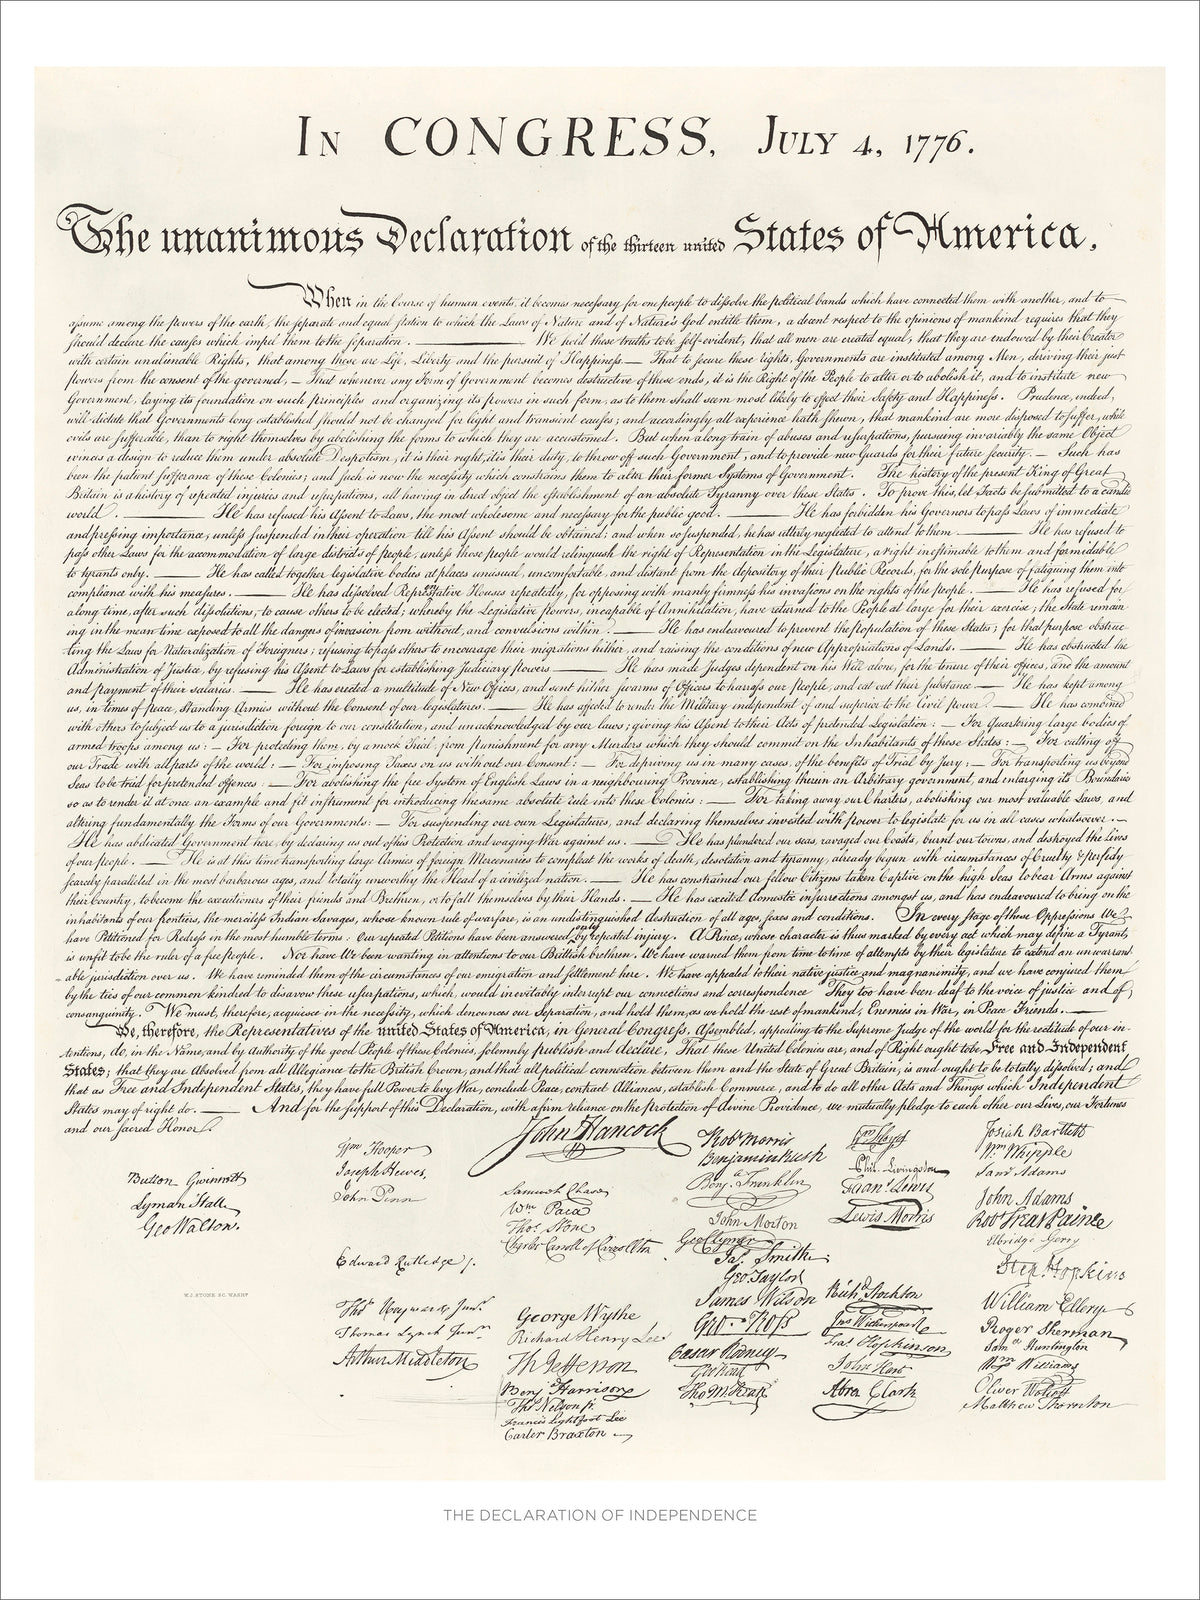 In CONGRESS, July 4, 1776.
The unanimous Declaration of the thirteen united States of America,
When in the Course of human events, it becomes necessary for one people to dissolve the political bands which have connected them with another, and to
assume among the powers of the earth, the separate and equal station to which the Laws of Nature and of Nature's God entitle them, a decent respect to the opinions of mankind requires that they
should declare the causes which impel them to the separation. — We hold these truths to be self-evident, that all men are created equal, that they are endowed by their Creator
with certain unalienable Rights, that among these are Life, Liberty and the pursuit of Happiness.— That to secure these rights, Governments are instituted among Men, deriving their just
powers from the consent of the governed, — That whenever any Form of Government becomes destructive of these ends, it is the Right of the People to alter or to abolish it, and to institute new
Government, laying its foundation on such principles and organizing its powers in such form, as to them shall seem most likely to effect their Safety and Happiness. Prudence, indeed,
will dictate that Governments long established should not be changed for light and transient causes; and accordingly all experience hath shewn, that mankind are more disposed to suffer, while
evils are sufferable, than to right themselves by abolishing the forms to which they are accustomed. But when a long train of abuses and usurpations, pursuing invariably the same Object
evinces a design to reduce them under absolute Despotism, it is their right, it is their duty, to throw off such Government, and to provide new Guards for their future security. — Such has
been the patient sufferance of these Colonies; and such is now the necessity which constrains them to alter their former Systems of Government. The history of the present King of Great
Britain is a history of repeated injuries and usurpations, all having in direct object the establishment of an absolute Tyranny over these States. To prove this, let Facts be submitted to a candid
world. — He has refused his Assent to Laws, the most wholesome and necessary for the public good. — He has forbidden his Governors to pass Laws of immediate
and pressing importance, unless suspended in their operation till his Assent should be obtained; and when so suspended, he has utterly neglected to attend to them — He has refused to
pass other Laws for the accommodation of large districts of people, unless those people would relinquish the right of Representation in the Legislature, a right inestimable to them and formidable
to tyrants only. — He has called together legislative bodies at places unusual, uncomfortable, and distant from the depository of their Public Records, for the sole purpose of fatiguing them into
compliance with his measures. — He has dissolved Representative Houses repeatedly, for opposing with manly firmness his invasions on the rights of the people. — He has refused for
a long time, after such dissolutions, to cause others to be elected; whereby the Legislative powers, incapable of Annihilation, have returned to the People at large for their exercise; the State remain
ing in the mean time exposed to all the dangers of invasion from without, and convulsions within. — He has endeavoured to prevent the population of these States; for that purpose obstruc
ting the Laws for Naturalization of Foreigners; refusing to pass others to encourage their migrations hither, and raising the conditions of new Appropriations of Lands. — He has obstructed the
Administration of Justice, by refusing his Assent to Laws for establishing Judiciary powers — He has made Judges dependent on his Will alone, for the tenure of their offices, and the amount
and payment of their salaries. — He has erected a multitude of New Offices, and sent hither swarms of Officers to harass our people, and eat out their substance — He has kept among
us, in times of peace, Standing Armies without the Consent of our legislatures. — He has affected to render the Military independent of and superior to the Civil power. — He has combined
with others to subject us to a jurisdiction foreign to our constitution, and unacknowledged by our laws; giving his Assent to their Acts of pretended Legislation: — For Quartering large bodies of
armed troops among us: — For protecting them, by a mock Trial, from punishment for any Murders which they should commit on the Inhabitants of these States: — For cutting off
our Trade with all parts of the world: — For imposing Taxes on us without our Consent: — For depriving us in many cases, of the benefits of Trial by Jury: — For transporting us beyond
Seas to be tried for pretended offences: — For abolishing the free System of English Laws in a neighbouring Province, establishing therein an Arbitrary government, and enlarging its Boundaries
so as to render it at once an example and fit instrument for introducing the same absolute rule into these Colonies: — For taking away our Charters, abolishing our most valuable Laws, and
altering fundamentally the Forms of our Governments: — For suspending our own Legislatures, and declaring themselves invested with power to legislate for us in all cases whatsoever. —
He has abdicated Government here, by declaring us out of his Protection and waging War against us. — He has plundered our seas, ravaged our Coasts, burnt our towns, and destroyed the lives
of our people. — He is at this time transporting large Armies of foreign Mercenaries to compleat the works of death, desolation and tyranny, already begun with circumstances of Cruelty & perfidy
scarcely paralleled in the most barbarous ages, and totally unworthy the Head of a civilized nation. — He has constrained our fellow Citizens taken Captive on the high Seas to bear Arms against
their Country, to become the executioners of their friends and Brethren, or to fall themselves by their Hands. — He has excited domestic insurrections amongst us, and has endeavoured to bring on the
inhabitants of our frontiers, the merciless Indian Savages, whose known rule of warfare, is an undistinguished destruction of all ages, sexes and conditions. In every stage of these Oppressions We
have Petitioned for Redress in the most humble terms: Our repeated Petitions have been answered only by repeated injury. A Prince, whose character is thus marked by every act which may define a Tyrant,
is unfit to be the ruler of a free people. Nor have We been wanting in attentions to our Brittish brethren. We have warned them from time to time of attempts by their legislature to extend an unwarrant
able jurisdiction over us. We have reminded them of the circumstances of our emigration and settlement here. We have appealed to their native justice and magnanimity, and we have conjured them
by the ties of our common kindred to disavow these usurpations, which, would inevitably interrupt our connections and correspondence They too have been deaf to the voice of justice and of
consanguinity. We must, therefore, acquiesce in the necessity, which denounces our Separation, and hold them, as we hold the rest of mankind, Enemies in War, in Peace Friends. —
We, therefore, the Representatives of the united States of America, in General Congress, Assembled, appealing to the Supreme Judge of the world for the rectitude of our in-
tentions, do, in the Name, and by Authority of the good People of these Colonies, solemnly publish and declare, That these United Colonies are, and of Right ought to be Free and Independent
States; that they are Absolved from all Allegiance to the British Crown, and that all political connection between them and the State of Great Britain, is and ought to be totally dissolved; and
that as Free and Independent States, they have full Power to levy War, conclude Peace, contract Alliances, establish Commerce, and to do all other Acts and Things which Independent
States may of right do. — And for the support of this Declaration, with a firm reliance on the protection of divine Providence, we mutually pledge to each other our Lives, our Fortunes
and our sacred Honor.
Button Gwinnett
Lyman Hall
Geo Walton.
Wm Hooper
Joseph Hewes,
John Penn
Edward Rutledge /.
Thos Heyward Junr.
Thomas Lynch Junr.
Arthur Middleton
John Hancock
Samuel Chase
Wm Paca
Thos. Stone
Charles Carroll of Carrollton
George Wythe
Richard Henry Lee
Th Jefferson
Benj Harrison
Thos Nelson jr.
Francis Lightfoot Lee
Carter Braxton
Robt Morris
Benjamin Rush
Benja. Franklin
John Morton
Geo Clymer
Jas. Smith
Geo. Taylor
James Wilson
Geo. Ross
Caesar Rodney
Geo Read
Tho M:Kean
Wm Floyd
Phil. Livingston
Frans. Lewis
Lewis Morris
Richd. Stockton
Jno Witherspoon
Fras. Hopkinson
John Hart
Abra Clark
Josiah Bartlett
Wm. Whipple
Saml Adams
John Adams
Robt Treat Paine
Elbridge Gerry
Step. Hopkins
William Ellery
Roger Sherman
Sam el Huntington
Wm Williams
Oliver Wolcott
Matthew Thornton
W.J. STONE SC. WASHN
THE DECLARATION OF INDEPENDENCE